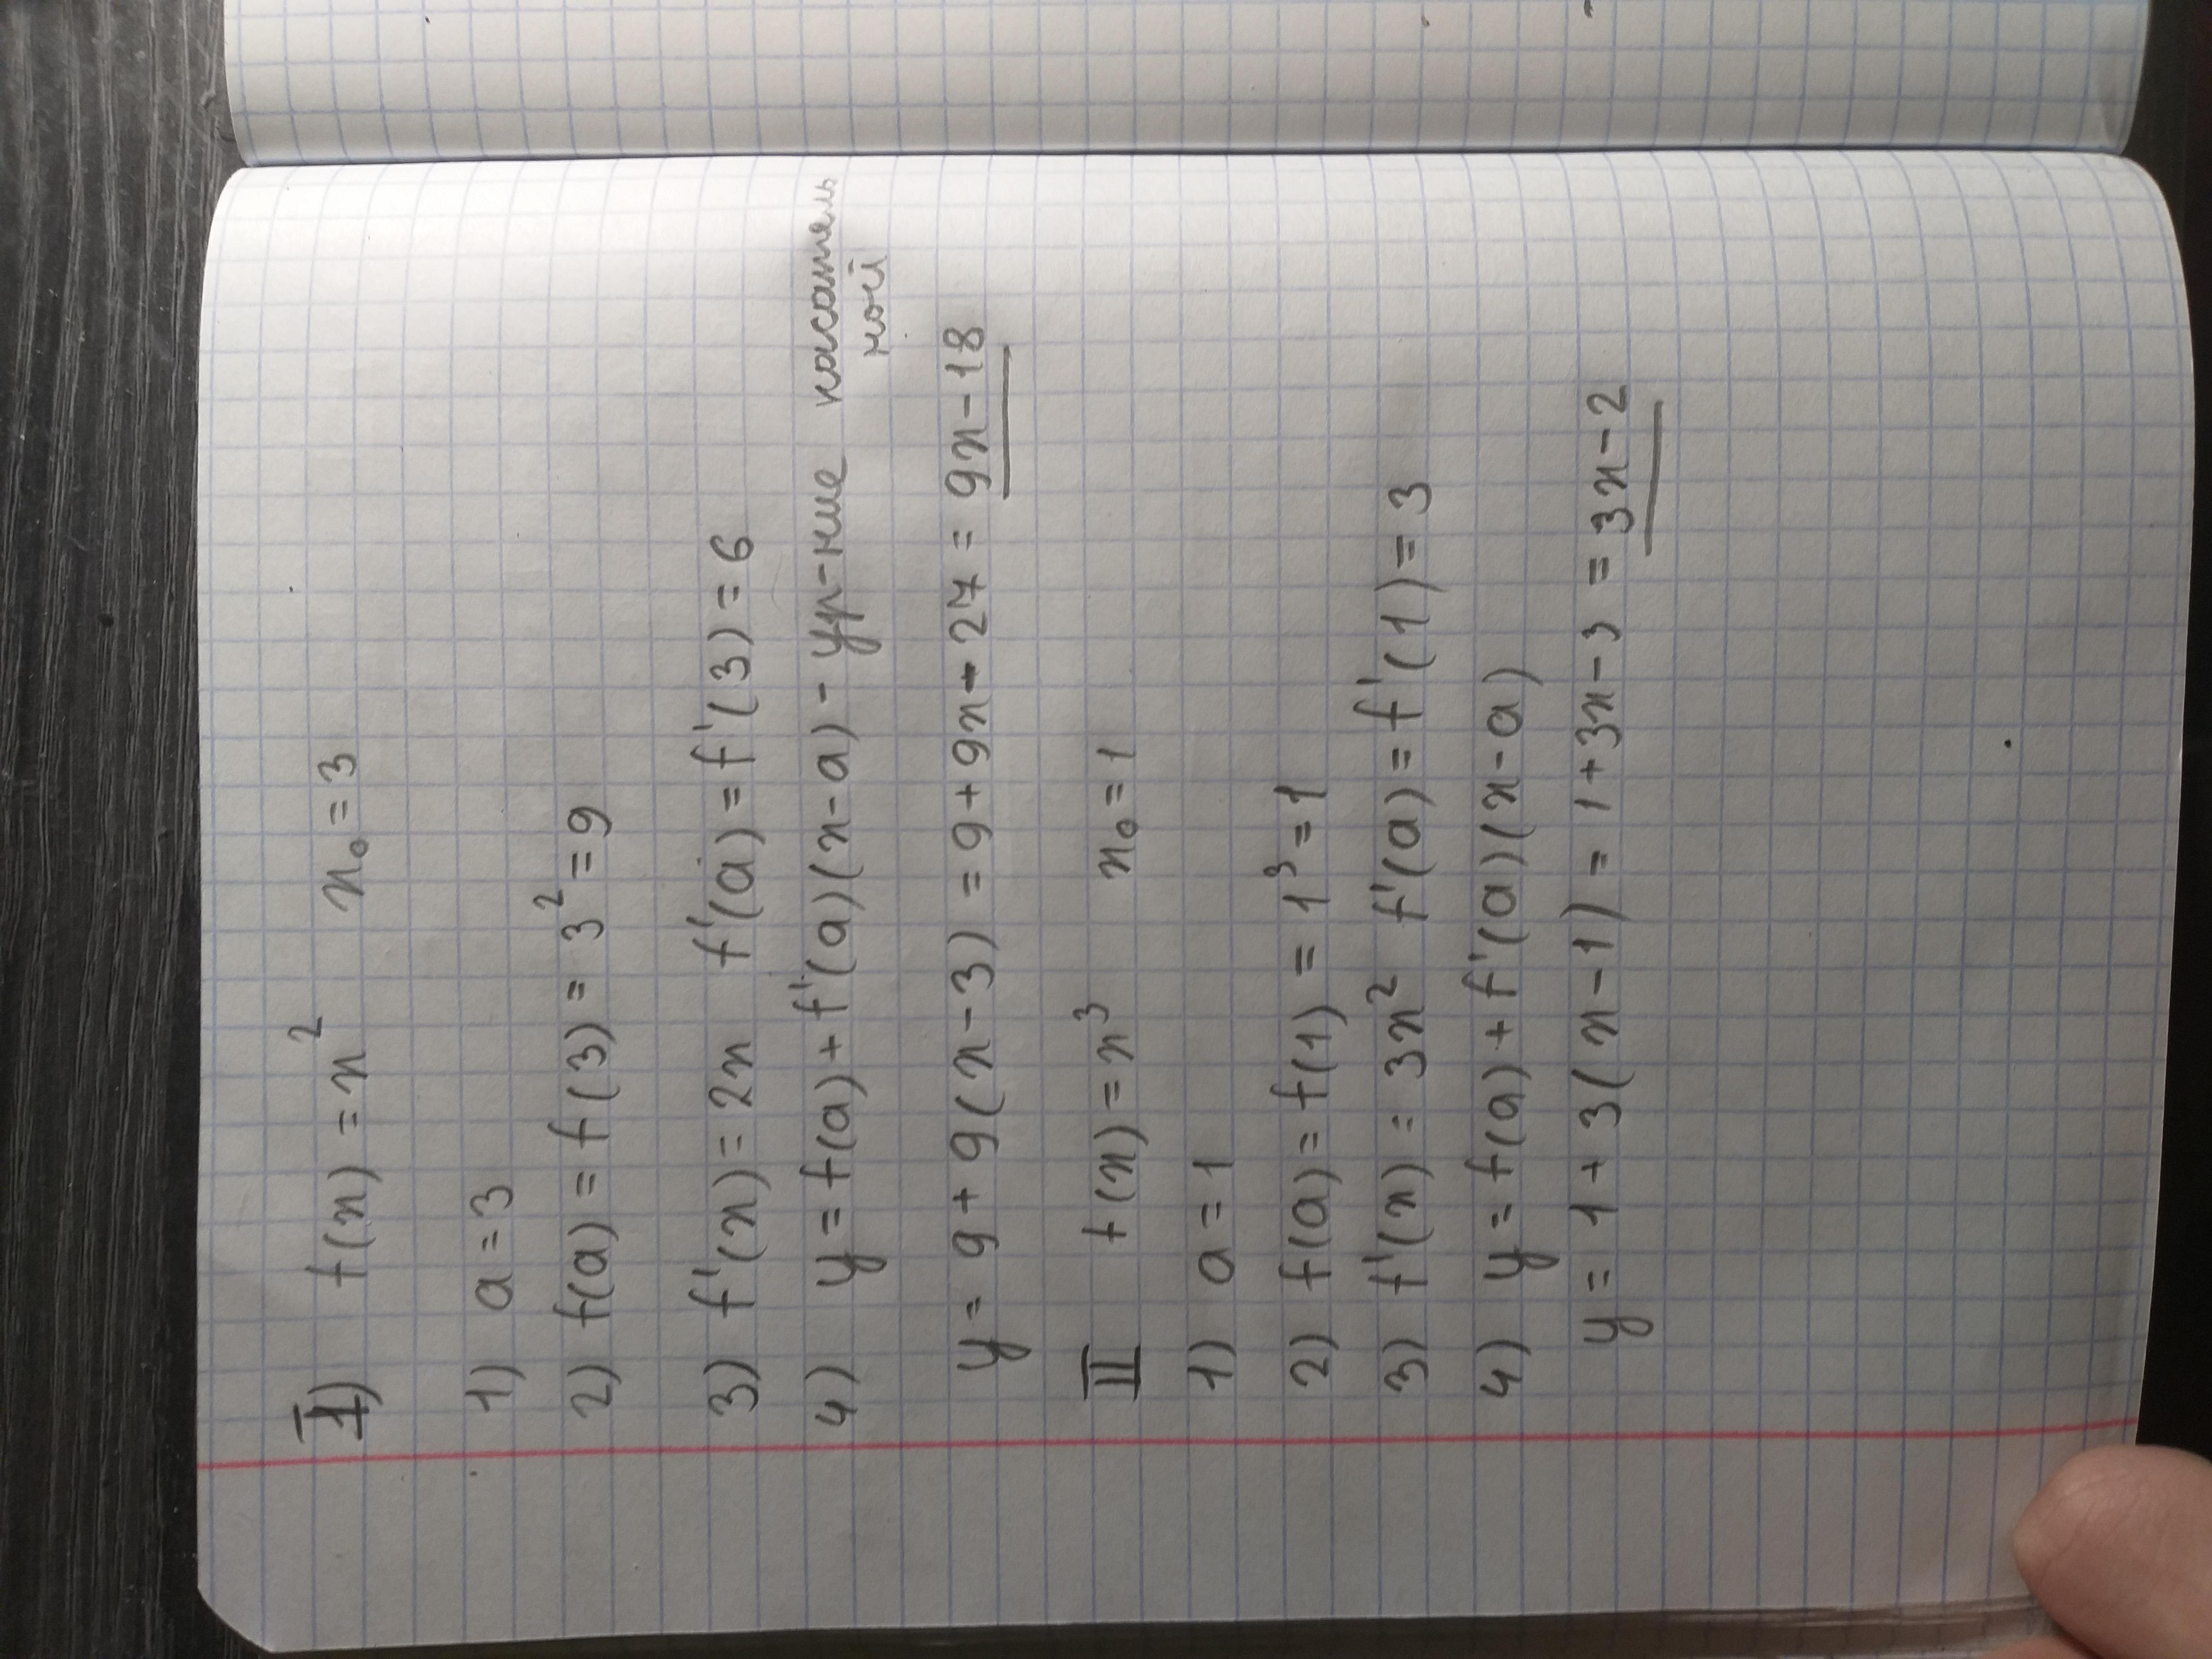 I) f(x) = x² x₀ = 3
1) a = 3
2) f(a) = f(3) = 3² = 9
3) f'(x) = 2x f'(a) = f'(3) = 6
4) y = f(a) + f'(a)(x-a) - ур-ние касатель
ной
y = 9 + 9(x-3) = 9 + 9x - 27 = 9x - 18
II f(x) = x³ x₀ = 1
1) a = 1
2) f(a) = f(1) = 1³ = 1
3) f'(x) = 3x² f'(a) = f'(1) = 3
4) y = f(a) + f'(a)(x-a)
y = 1 + 3(x-1) = 1 + 3x - 3 = 3x - 2